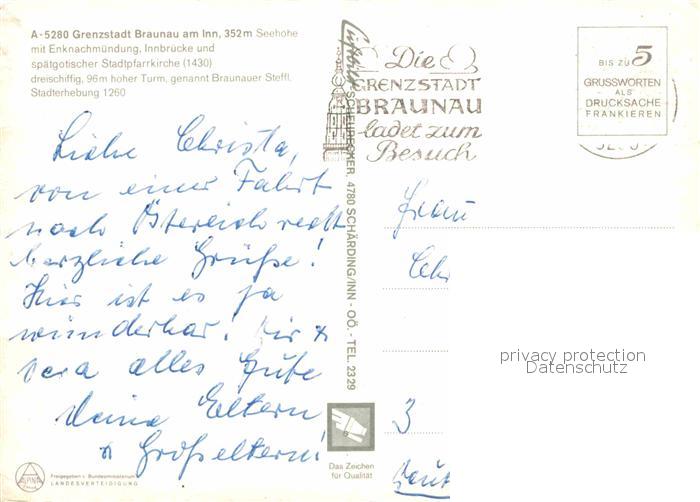 A-5280 Grenzstadt Braunau am Inn, 352m Seehöhe
mit Enknachmündung, Innbrücke und
spätgotischer Stadtpfarrkirche (1430)
dreischiffig, 96m hoher Turm, genannt Braunauer Steffl.
Stadterhebung 1260
Liebe Christa,
von einer Fahrt
nach Östereich recht
herzliche Grüße!
Hier ist es ja
wunderbar! Dir +
alles Gute
Deine Eltern
+ Großeltern!
Freigegeben v. Bundesministerium
LANDESVERTEIDIGUNG
ALPINA
Luftbild SCHEUERECKER, 4780 SCHÄRDING/INN - OÖ. - TEL. 2329
Das Zeichen
für Qualität
Die
GRENZSTADT
BRAUNAU
ladet zum
Besuch
BIS ZU 5
GRUSSWORTEN
ALS
DRUCKSACHE
FRANKIEREN
Frau
Chr
3
privacy protection
Datenschutz